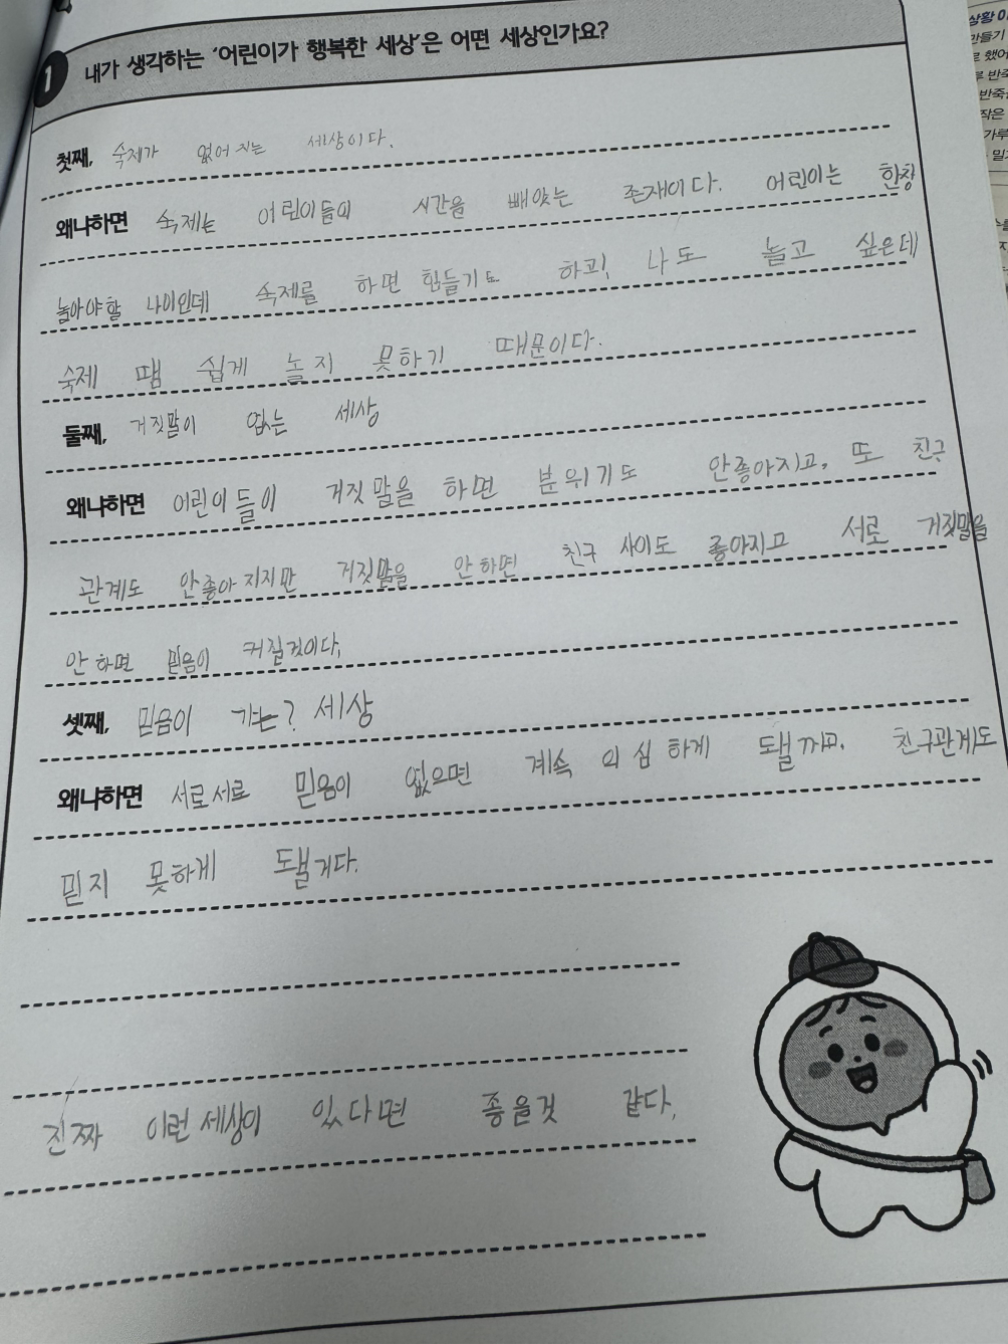 1 내가 생각하는 '어린이가 행복한 세상'은 어떤 세상인가요?
첫째, 숙제가 없어지는 세상이다.
왜냐하면 숙제는 어린이들의 시간을 빼앗는 존재이다. 어린이는 한창
놀아야할 나이인데 숙제를 하면 힘들기도 하고, 나도 놀고 싶은데
숙제 땜 쉽게 놀지 못하기 때문이다.
둘째, 거짓말이 없는 세상
왜냐하면 어린이들이 거짓말을 하면 분위기도 안좋아지고, 또 친구
관계도 안좋아지지만 거짓말을 안하면 친구 사이도 좋아지고 서로 거짓말을
안하면 믿음이 커질것이다.
셋째, 믿음이 는? 세상
왜냐하면 서로서로 믿음이 없으면 계속 의심하게 돼고. 친구관계도
믿지 못하게 됄거다.
진짜 이런 세상이 있다면 좋을것 같다.
상황
만들기